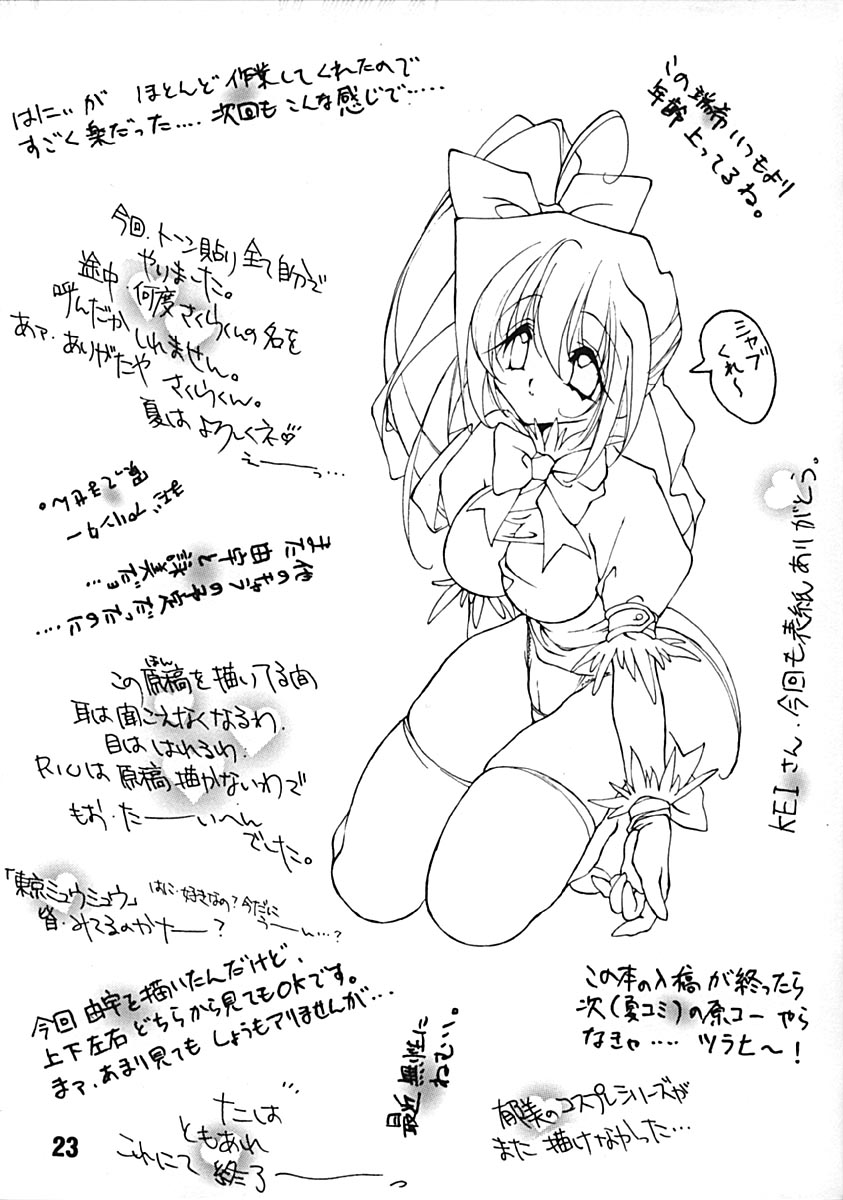 はにぃが ほとんど 作業してくれたので
すごく楽だった.... 次回も こんな感じで.....
この 瑞希 いつもより
年齢 上ってるね。
今回、トーン貼り全て自分で
やりました。
途中、何度さくらくんの名を
呼んだか しれません。
あァ、ありがたや さくらくん。
夏は よろしくネ♡
えーーっ...
ミャブ
くれ〜
KEIさん、今回も表紙ありがとう。
この原稿を描いてる間
ほん
耳は聞こえなくなるわ、
目は はれるわ、
RIUは 原稿描かないわで
もお、たーーいへん
でした。
「東京ミュウミュウ」
皆、みてるのかなー?
はに、好きなの?今だに
うーん...?
今回 由宇を描いたんだけど、
上下左右 どちらから見てもOKです。
まァ、あまり見ても しょうもアリませんが...
最近 無性に
ねむい。
この本の入稿が終ったら
次(夏コミ)の原コー やら
なきゃ.... ツラヒ〜!
郁美のコスプレシリーズが
また 描けなかった...
ともあれ
これにて 終了ーーーっ
23